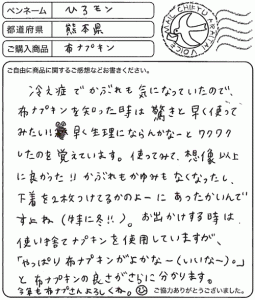 ペンネーム ひろモン
都道府県 熊本県
ご購入商品 布ナプキン
ご自由に商品に関するご感想などお書きください。
冷え症でかぶれも気になっていたので、
布ナプキンを知った時は驚きと早く使って
みたい!! 早く生理にならんかなーとワクワク
したのを覚えています。使ってみて、想像以上
に良かった!! かぶれもかゆみもなくなったし、
下着を2枚つけてるかのよーにあったかいんで
すよね(特に冬!!)。お出かけする時は、
使い捨てナプキンを使用していますが、
「やっぱり布ナプキンがよかなー(いいなー)。」
と布ナプキンの良さがさらに分かります。
今年も布ナプさんよろしくね。
ご協力ありがとうございました。